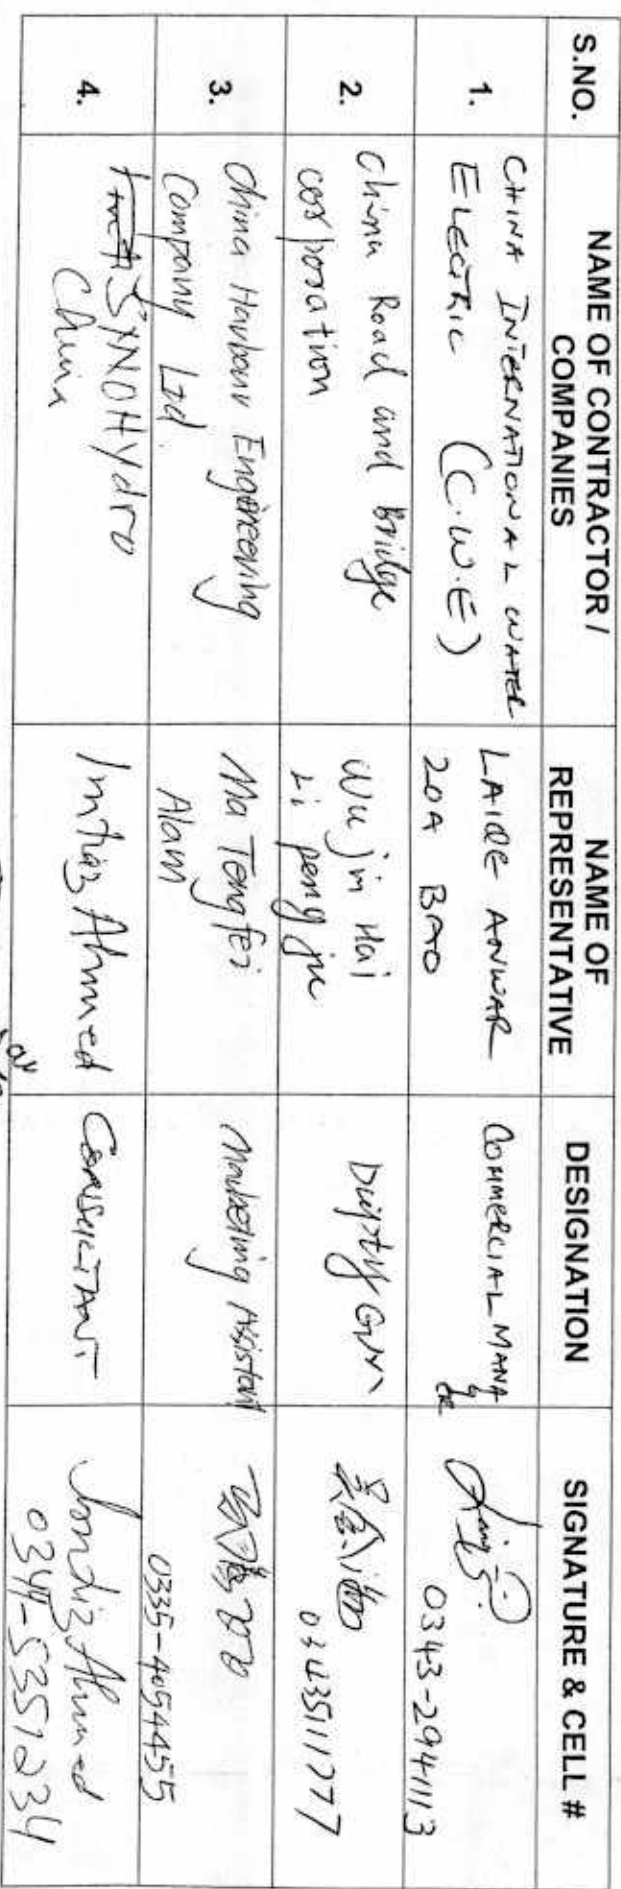 S.NO.
NAME OF CONTRACTOR /
COMPANIES
NAME OF
REPRESENTATIVE
DESIGNATION
SIGNATURE & CELL #
1.
CHINA INTERNATIONAL WATER
ELECTRIC (C.W.E)
LAIQE ANWAR
ZOA BAO
COMMERCIAL MANAGER
0343-2941113
2.
China Road and Bridge
corporation
Wu jin Hai
Li peng ju
Duipty GM
吴金海
03435111777
3.
China Harbour Engineering
Company Ltd
Ma Tengfei
Alam
Marketing Assistant
马腾飞
0335-4054455
4.
SYNOHydro
China
Imtiaz Ahmed
CONSULTANT
Imtiaz Ahmed
0341-5351234